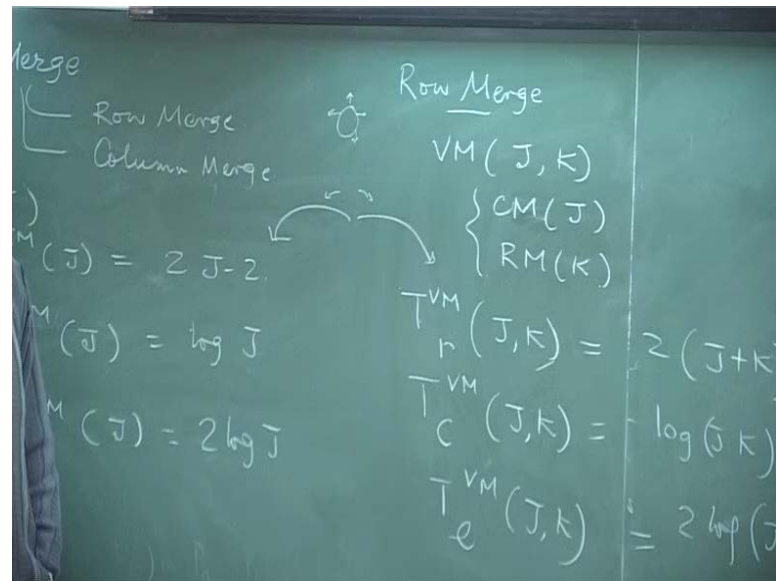 Merge
Row Merge
Column Merge
)
M (J) = 2 J - 2
M (J) = log J
M (J) = 2 log J
Row Merge
VM(J, K)
{ CM(J)
RM(K)
T_r^VM (J, K) = 2 (J + K
T_c^VM (J, K) = log (J K)
T_e^VM (J, K) = 2 log (J